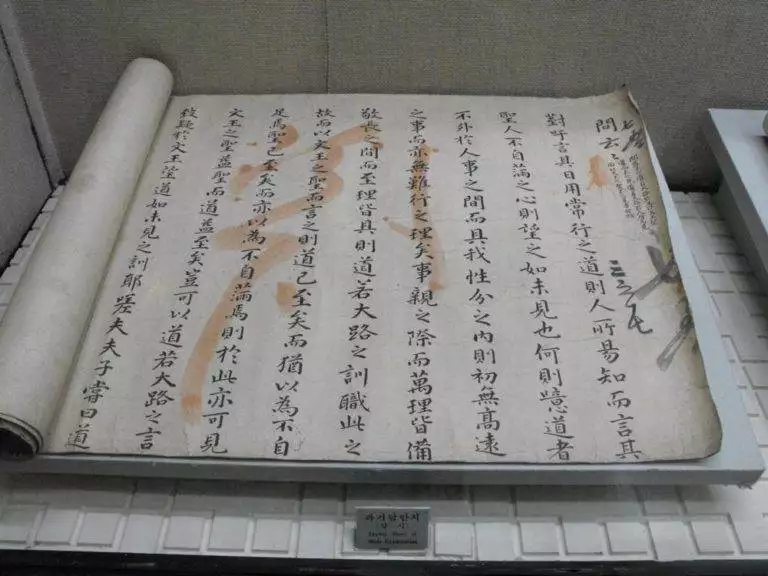 問云
對吁言其日用常行之道則人所易知而言其
聖人不自滿之心則望之如未見也何則噫道者
不外於人事之間而具我性分之內則初無高遠
之事而亦無難行之理矣事親之際而萬理皆備
敬長之間而至理皆具則道若大路之訓職此之
故而以文王之聖而言之則道已至矣而猶以為不自
足焉聖已至矣而亦以為不自滿焉則於此亦可見
文王之聖益聖而道益至矣豈可以道若大路之言
致疑於文王望道如未見之訓耶嗟夫夫子嘗曰道
과거답안지